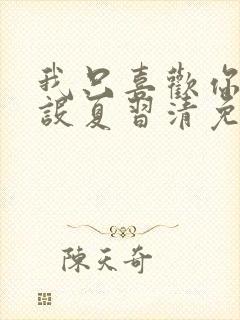 我只喜歡你
設夏習清免
陳天奇